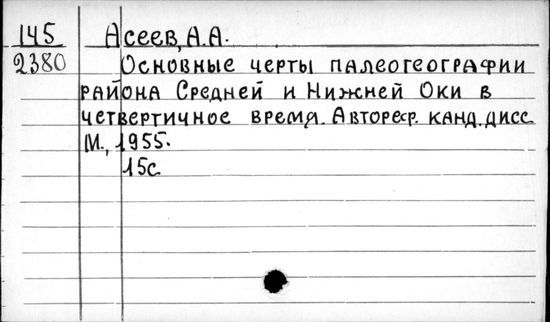 145 Асеев, А.А.
2380 Основные черты палеогеографии
района Средней и Нижней Оки в
четвертичное время. Автореф. канд. дисс
М., 1955.
15с